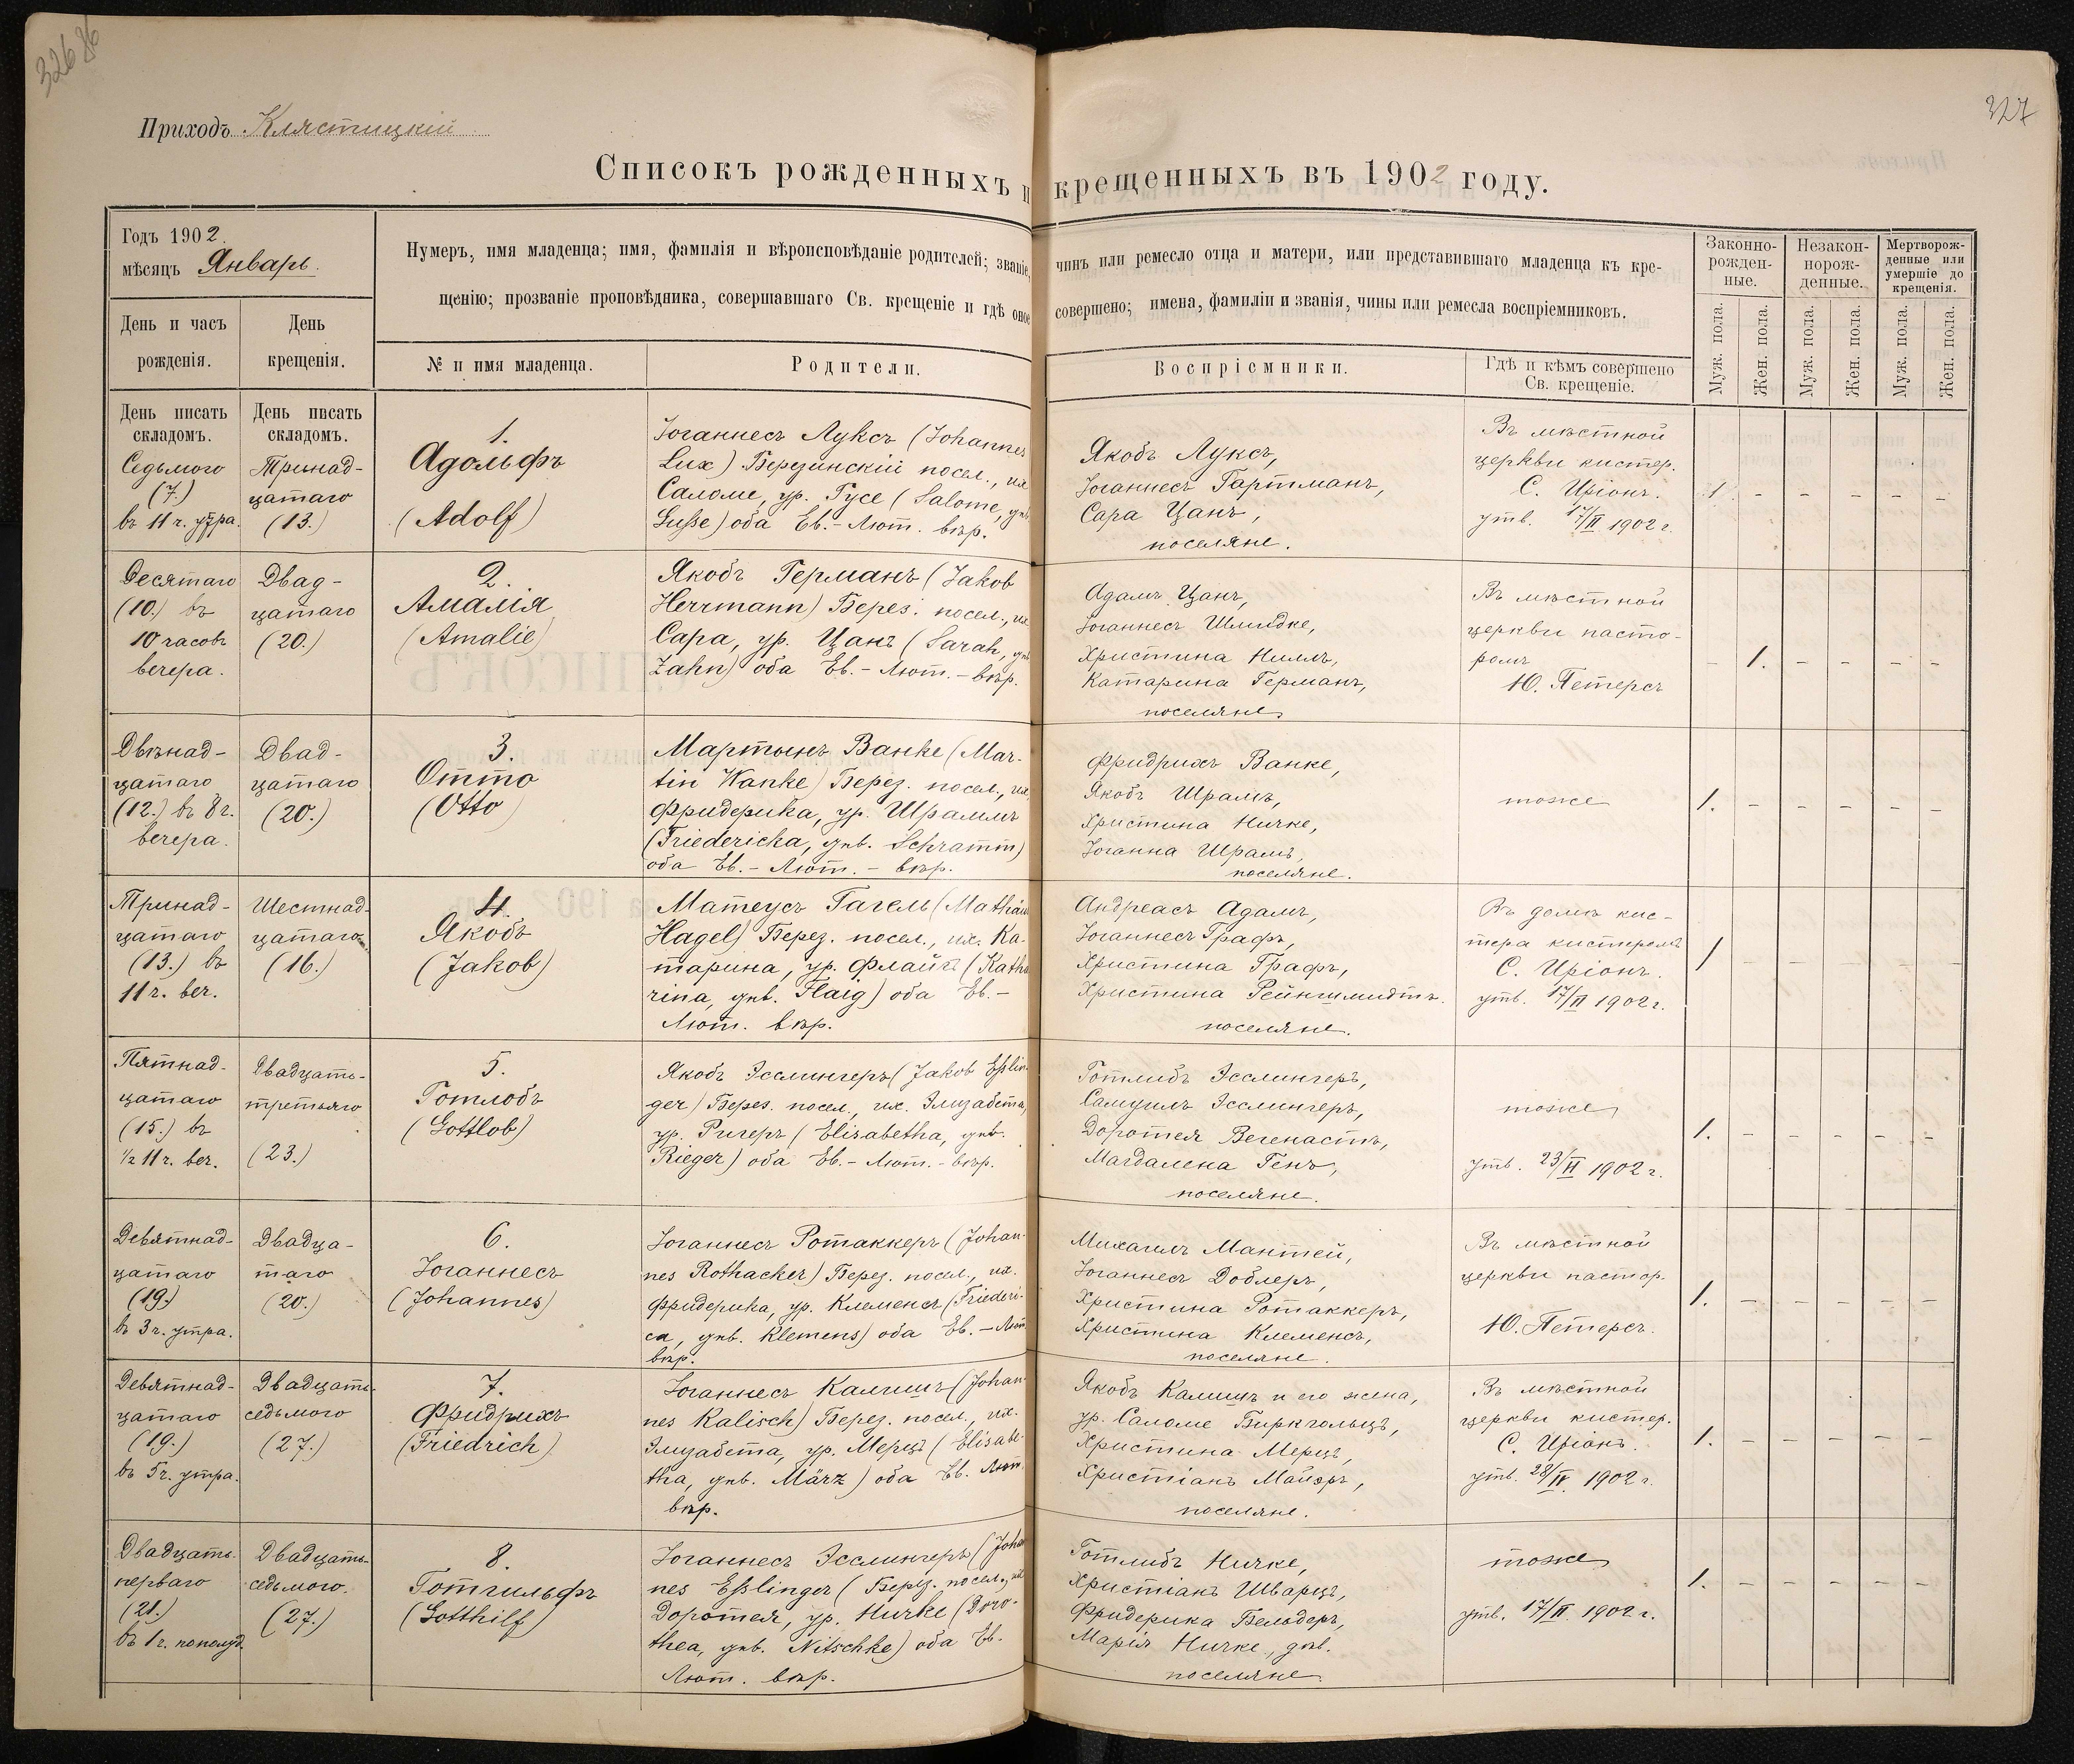 326 86
327
Приходъ Клястицкій
Списокъ рожденныхъ и крещенныхъ въ 1902 году.
Годъ 1902.
мѣсяцъ Январь.
Нумеръ, имя младенца; имя, фамилія и вѣроисповѣданіе родителей; званіе, чинъ или ремесло отца и матери, или представившаго младенца къ кре-
щенію; прозваніе проповѣдника, совершавшаго Св. крещеніе и гдѣ оное совершено; имена, фамиліи и званія, чины или ремесла воспріемниковъ.
День и часъ
рожденія.
День
крещенія.
№ и имя младенца.
Родители.
Воспріемники.
Гдѣ и кѣмъ совершено
Св. крещеніе.
Законно-
рожден-
ные.
Незакон-
норож-
денные.
Мертворож-
денные или
умершіе до
крещенія.
Муж. пола.
Жен. пола.
Муж. пола.
Жен. пола.
Муж. пола.
Жен. пола.
День писать
складомъ.
День писать
складомъ.
Седьмого
(7.)
въ 11 ч. утра.
Тринад-
цатаго
(13.)
1.
Адольфъ
(Adolf)
Іоганнесъ Луксъ (Johannes
Lux) Березинскій посел., их
Саломе, ур. Гусе (Salome, gнв.
Suße) оба Ев.-Лют. вѣр.
Якобъ Луксъ,
Іоганнесъ Гартманъ,
Сара Цанъ,
поселяне.
Въ мѣстной
церкви кистер.
С. Иріонъ.
утв. 17/II 1902 г.
1. - - - - -
Десятаго
(10.) въ
10 часовъ
вечера.
Двад-
цатаго
(20.)
2.
Амалія
(Amalie)
Якобъ Германъ (Jakob
Herrmann) Берез. посел., их
Сара, ур. Цанъ (Sarah, gнв
Zahn) оба Ев.-Лют.-вѣр.
Адамъ Цанъ,
Іоганнесъ Шмидке,
Христина Нилль,
Катарина Германъ,
поселяне.
Въ мѣстной
церкви пасто-
ромъ
Ю. Петерсъ
- 1. - - - -
Двѣнад-
цатаго
(12.) въ 8 ч.
вечера.
Двад-
цатаго
(20.)
3.
Отто
(Otto)
Мартынъ Ванке (Mar-
tin Wanke) Берез. посел., их.
Фридерика, ур. Шраммъ
(Friedericka, gнв. Schramm)
оба Ев.-Лют.-вѣр.
Фридрихъ Ванке,
Якобъ Шрамъ,
Христина Ничке,
Іоганна Шрамъ,
поселяне.
тоже
1. - - - - -
Тринад-
цатаго
(13.) въ
11 ч. веч.
Шестнад-
цатаго
(16.)
4.
Якобъ
(Jakob)
Матеусъ Гагель (Mathäus
Hagel) Берез. посел., их. Ка-
тарина, ур. Флайгъ (Katha
rina, gнв. Flaig) оба Ев.-
Лют. вѣр.
Андреасъ Адамъ,
Іоганнесъ Графъ,
Христина Графъ,
Христина Рейншмидтъ.
поселяне.
Въ домѣ кис-
тера кистеромъ
С. Иріонъ.
утв. 17/II 1902 г.
1 - - - - -
Пятнад-
цатаго
(15.) въ
½ 11 ч. веч.
Двадцать-
третьяго
(23.)
5.
Готлобъ
(Gottlob)
Якобъ Эсслингеръ (Jakob Eßlin
ger) Берез. посел., их. Элизабета,
ур. Ригеръ (Elisabetha, gнв.
Rieger) оба Ев.-Лют.-вѣр.
Готлибъ Эсслингеръ,
Самуилъ Эсслингеръ,
Доротея Вегенастъ,
Магдалена Генъ,
поселяне.
тоже
утв. 23/II 1902 г.
1. - - - - -
Девятнад-
цатаго
(19.)
въ 3 ч. утра.
Двадца-
таго
(20.)
6.
Іоганнесъ
(Johannes)
Іоганнесъ Ротаккеръ (Johan-
nes Rothacker) Берез. посел., их.
Фридерика, ур. Клеменсъ (Friederi-
ca, gнв. Klemens) оба Ев.-Лют
вѣр.
Михаилъ Мантей,
Іоганнесъ Доблеръ,
Христина Ротаккеръ,
Христина Клеменсъ,
поселяне.
Въ мѣстной
церкви пастор.
Ю. Петерсъ.
1. - - - - -
Девятнад-
цатаго
(19.)
въ 5 ч. утра.
Двадцать-
седьмого
(27.)
7.
Фридрихъ
(Friedrich)
Іоганнесъ Калишъ (Johan-
nes Kalisch) Берез. посел., их.
Элизабета, ур. Мерцъ (Elisabe-
tha, gнв. März) оба Ев. Лют.
вѣр.
Якобъ Калишъ и его жена,
ур. Саломе Биркгольцъ,
Христина Мерцъ,
Христіанъ Майэръ,
поселяне.
Въ мѣстной
церкви кистер.
С. Иріонъ.
утв. 28/IV 1902 г.
1. - - - - -
Двадцать-
перваго
(21.)
въ 1 ч. пополуд.
Двадцать-
седьмого.
(27.)
8.
Готгильфъ
(Gotthilf)
Іоганнесъ Эсслингеръ (Johan
nes Eßlinger (Берез. посел., их
Доротея, ур. Ничке (Doro-
thea, gнв. Nitschke) оба Ев.
Лют. вѣр.
Готлибъ Ничке,
Христіанъ Шварцъ,
Фридерика Бельдеръ,
Марія Ничке, gнв.
поселяне.
тоже
утв. 17/II. 1902 г.
1. - - - - -